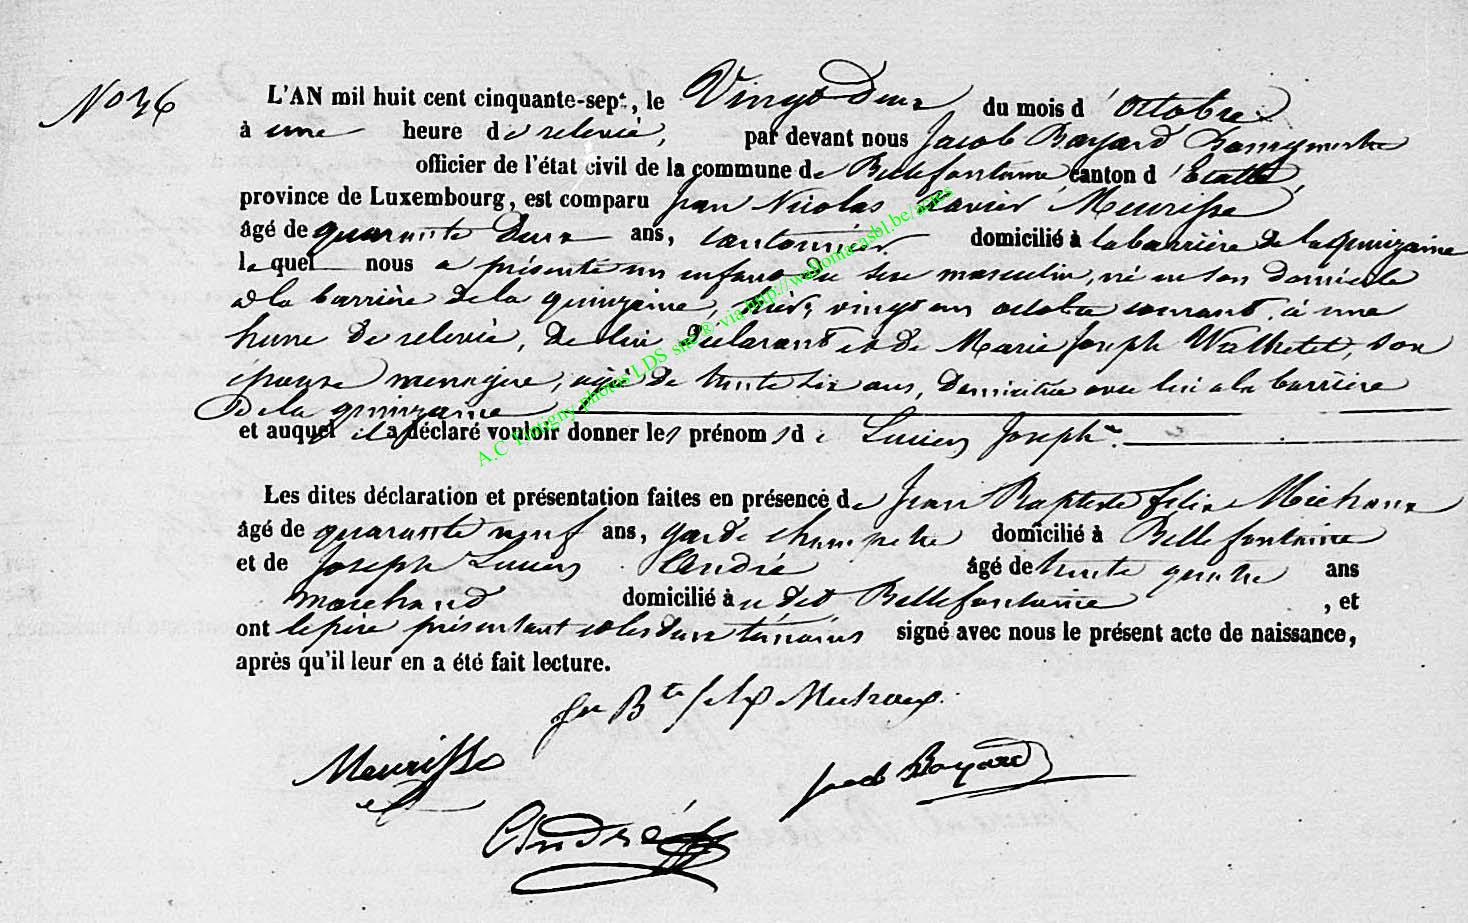 No 36
L'AN mil huit cent cinquante-sept, le Vingt Deux du mois d'octobre
à une heure de relevée, par devant nous Jacob Bayard Bourgmestre
officier de l'état civil de la commune de Bellefontaine canton d'Etalle,
province de Luxembourg, est comparu Jean Nicolas Xavier Meurisse,
âgé de quarante Deux ans, cantonnier domicilié à la barrière de la quinzaine
lequel nous a présenté un enfant du sexe masculin, né en son domicile
à la barrière de la quinzaine, hier, vingt un octobre courant, à une
heure de relevée, de lui déclarant et de Marie Joseph Walhetet, son
épouse menagère, agé de trente six ans, Domiciliée avec lui a la barrière
De la quinzaine
et auquel il a déclaré vouloir donner les prénoms de Lucien Joseph.
Les dites déclaration et présentation faites en présence de Jean Baptiste felix Michaux
âgé de quarante neuf ans, garde champetre domicilié à Bellefontaine
et de Joseph Lucien André âgé de trente quatre ans
marchand domicilié à udit Bellefontaine, et
ont le père présentant et les deux témoins signé avec nous le présent acte de naissance,
après qu'il leur en a été fait lecture.
Jn Bte felix Michaux
Meurisse
Jacob Bayard
André
A.C Tintigny photos LDS site ® via http://wallonia-asbl.be/actes